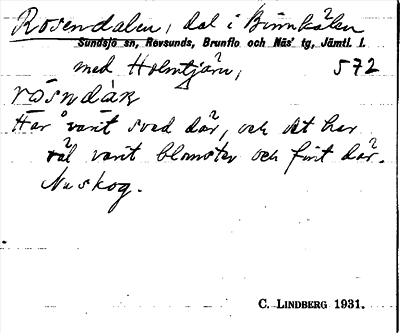 Rosendalen, dal i Binnkälen
Sundsjö sn, Revsunds, Brunflo och Näs' tg, Jämtl. l.
med Holmtjärn, 572
Har varit svad där, och det har
väl varit blomster och fint där.
Nu skog.
C. LINDBERG 1931.